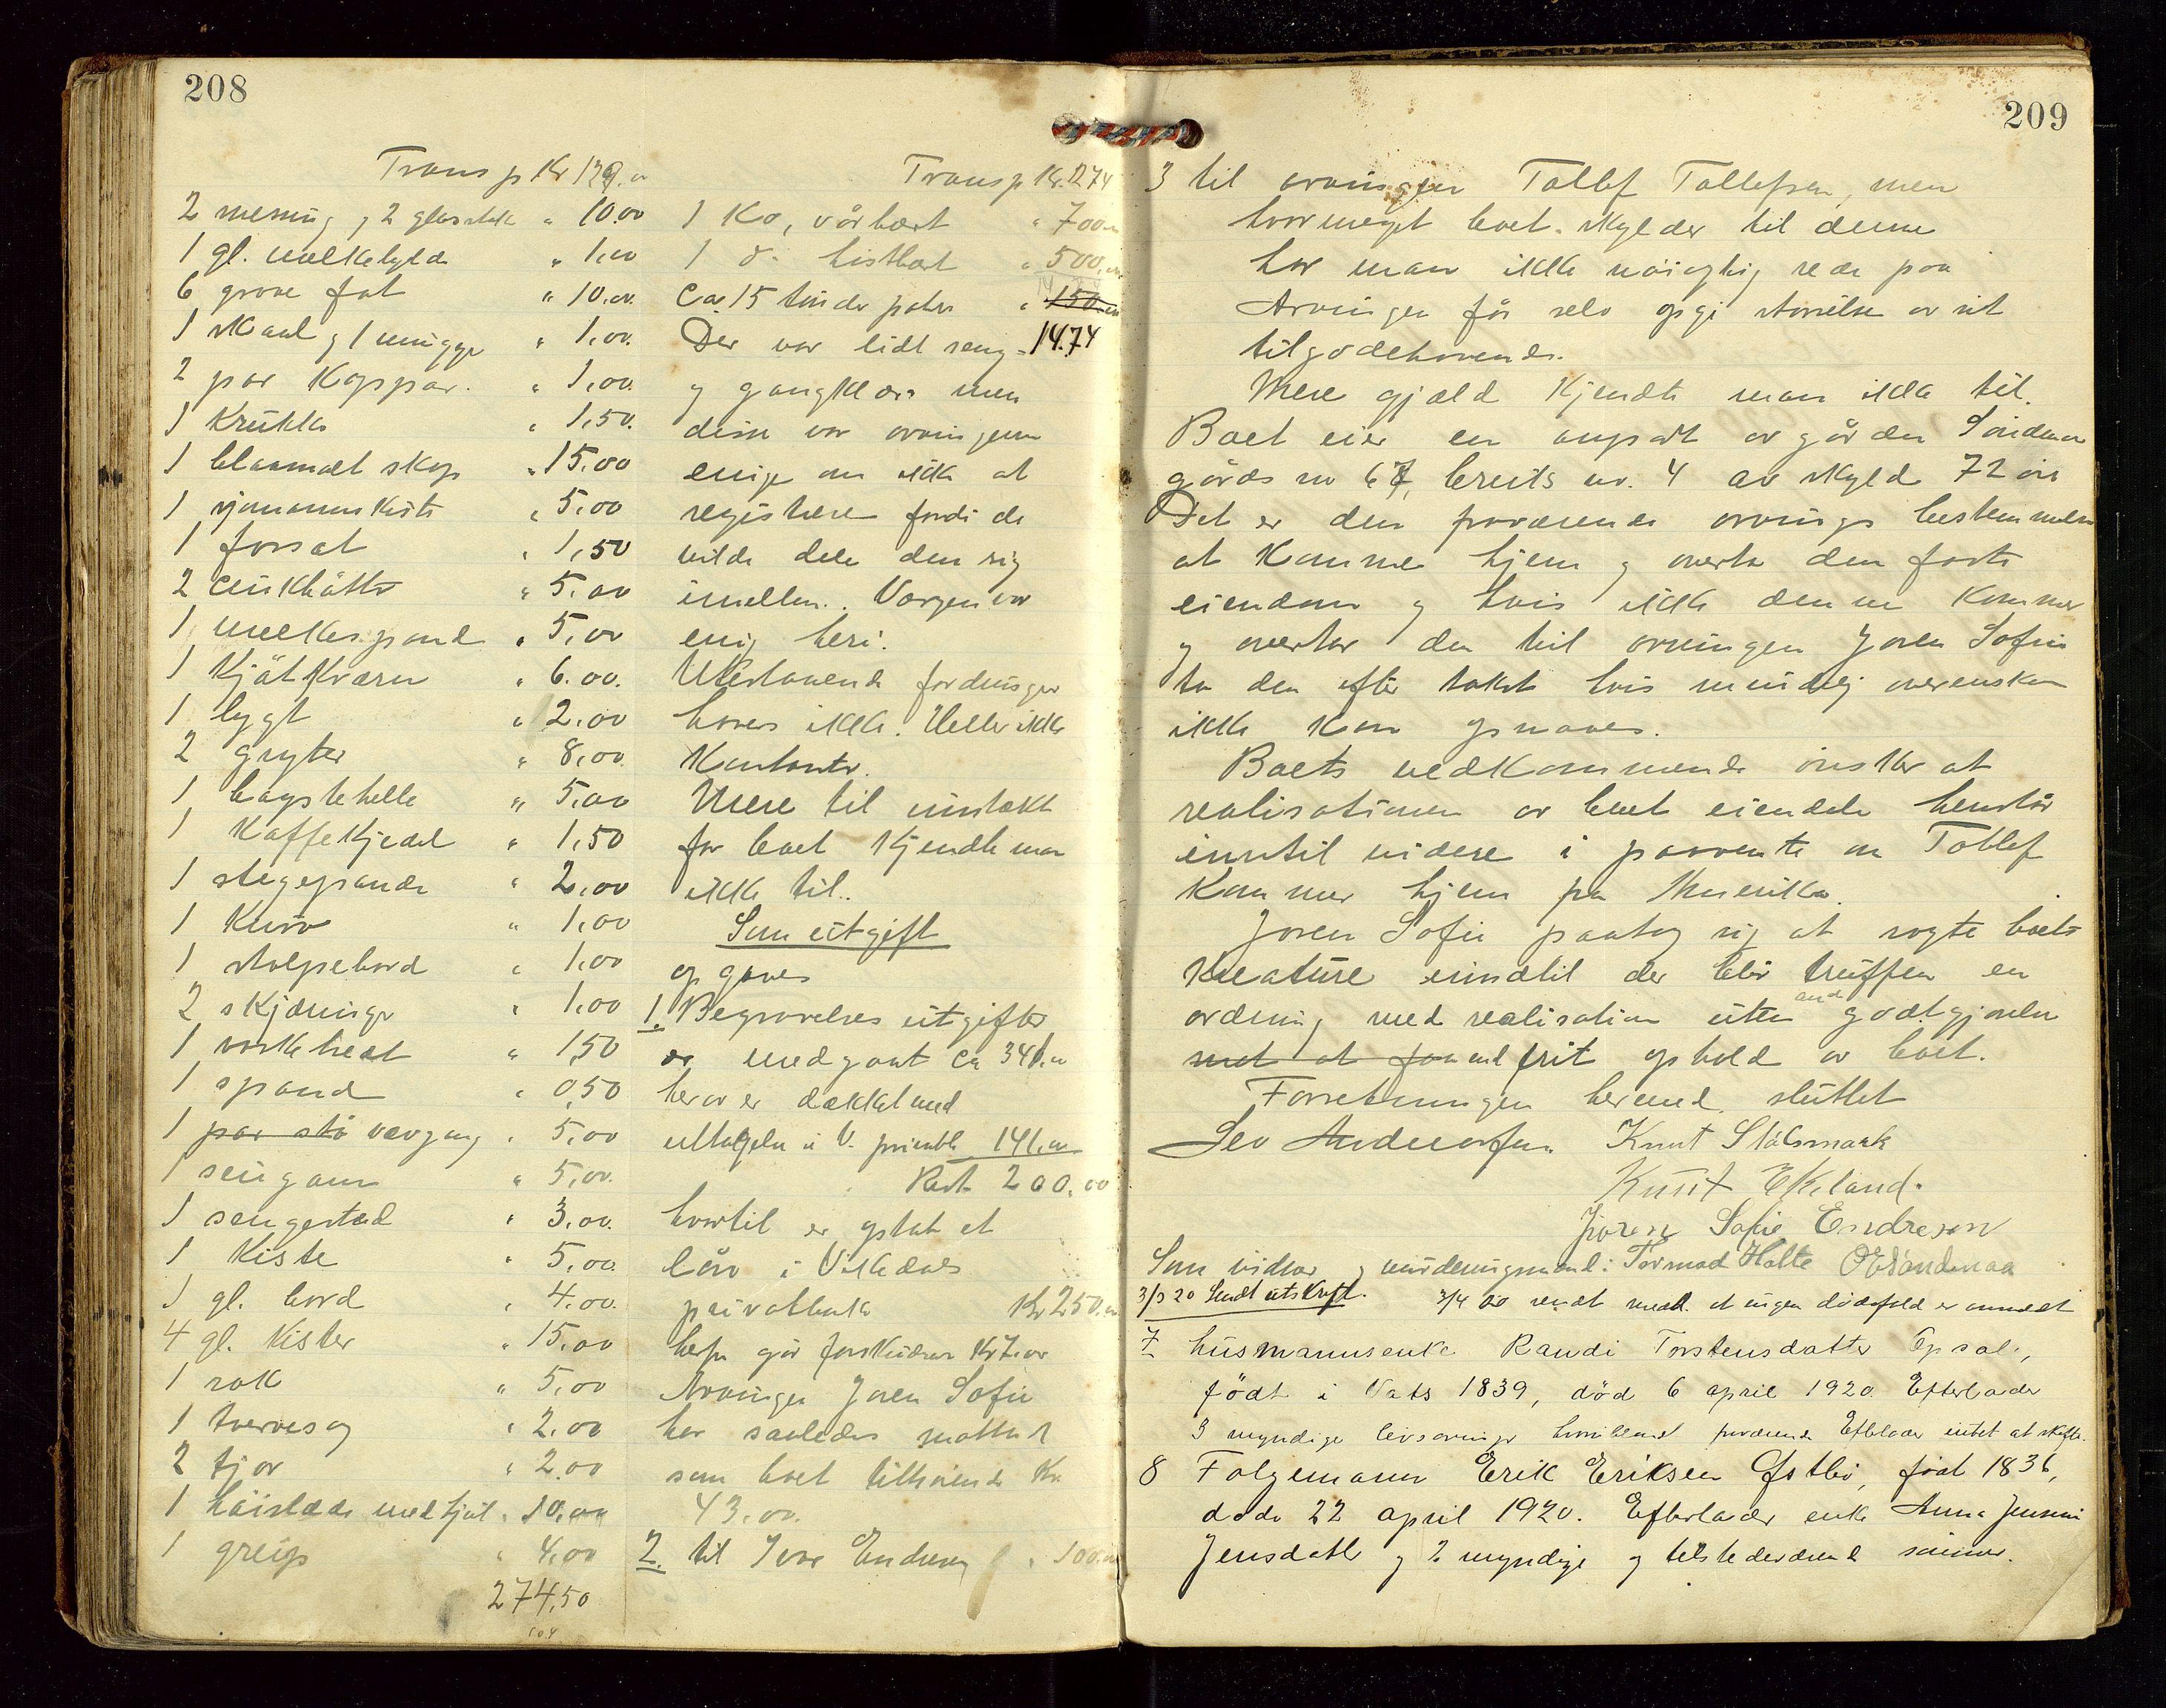 208
Transp Kr 129.00
2 messing og 2 glasstak " 10.00
1 gl. melkehylde " 1,00
6 grove fat " 10.00
1 skaal og 1 mugge " 1,00
2 par Koppar. " 1,00
1 Krukke " 1,50
1 blaamalt skap " 15,00
1 sjømannskiste " 5,00
1 forsat " 1,50
2 " 5,00
1 melkespand " 5,00
1 Kjøtkværn " 6.00
1 lygt " 2,00
2 gryter " 8,00
1 bagstehelle " 5,00
1 Kaffekjedel " 1,50
1 stegepande " 2,00
1 Kurv " 1,00
1 stolpebord " 1,00
2 skjæringe " 1,00
1 " 1,50
1 spand " 0,50
1 par stø vevgang " 5,00
1 " 5,00
1 sengested " 3,00
1 Kiste " 5,00
1 gl. bord " 4.00
4 gl. Kister " 15,00
1 rok " 5,00
1 tversag " 2,00
2 tjor " 2,00
1 høislæde med hjul " 10,00
1 greip " 4,00
274,50
Transp Kr. 274
1 Ko, vårbært " 700.00
1 do høstbært " 500.00
Ca 15 tønder " 150.00
Der var lidt seng- 1474
og gangklær men
disse var arvingene
enige om ikke at
registrere fordi de
vilde dele dem sig
imellem. Vergen var
enig heri.
Utestaaende fordringer
haves ikke. Heller ikke
Kontanter.
Mere til inntækt
for boet Kjendte man
ikke til.
Som utgift
opgaves
1. Begravelses utgifter
er medgaat ca 341.00
herav er dækket med
141.00
Rest 200.00
hvortil er optat et
lån i Vikedals
privatbank Kr 250.00
herfra går forskudsr Kr 7.00
Arvingen Joren Sofie
har saaledes mottat
som boet tilhørende Kr
43.00.
2. til Iver Endresen " 100.00
209
3 til arvingen Tollef Tollefsen, men
hvormeget boet skylder til denne
har man ikke nøiagtig rede paa
Arvingen får selv opgi størrelse av sit
tilgodehavende.
Mere gjæld Kjendte man ikke til.
Boet eier en anpart av gården Søndenaa
gårds nr 67, bruks nr. 4 av skyld 72 øre
Det er den fraværende arvings bestemmelse
at Komme hjem og overta den faste
eiendom og hvis ikke denne Kommer
og overtar den vil arvingen Joren Sofie
ta den efter takst hvis mindelig overenskom
ikke kan opnaaes.
Boets vedkommende ønsker at
realisationen av boets eiendele henstår
inntil videre i paavente om Tollef
Kommer hjem fra Amerika.
Joren Sofie paatog sig at røgte boets
Kreature inndtil der blir truffen en
ordning med realisation uten and godtgjørelse
med at faa end frit ophold av boet.
Forretningen hermed sluttet
Sev Andersen. Knut Stålsmark
Knut Ekeland.
Joren Sofie Endresen
Som vidner og vurderingsmænd: Tormod Halte O E Søndenaa
3/3 20 Sendt utskrift. 3/4 20 sendt meld. at ingen dødsfald er anmeldt
7 husmannsenke Randi Torstensdatter Opsal,
født i Vats 1839, død 6 april 1920. Efterlader
3 myndige livsarvinger hvoriblandt fraværende Efterlader intet at skifte.
8 Folgemann Erik Eriksen Østbø, født 1836,
døde 22 april 1920. Efterlader enke Anna
Jensdatter og 2 myndige og tilstedeværende sønner.